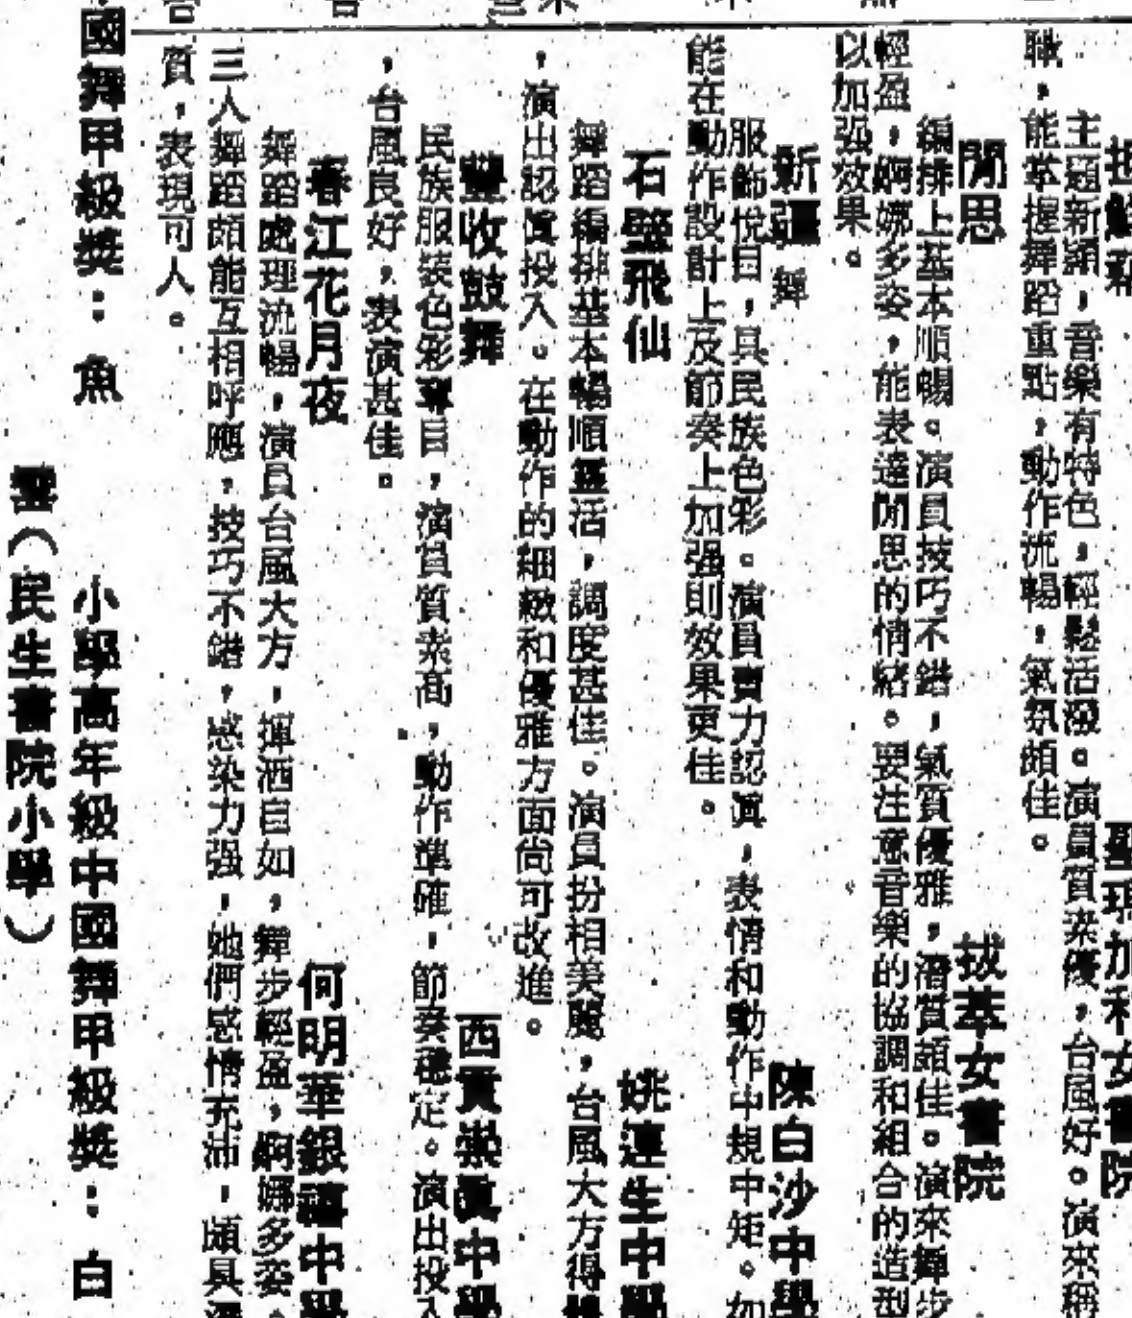 聖瑪加利女書院
主題新穎，音樂有特色，輕鬆活潑。演員質素優，台風好。演來稱
職，能掌握舞蹈重點，動作流暢，氣氛頗佳。
閒思　拔萃女書院
編排上基本順暢。演員技巧不錯，氣質優雅，潛質頗佳。演來舞步
輕盈，婀娜多姿，能表達閒思的情緒。要注意音樂的協調和組合的造型
以加强效果。
新疆舞　陳白沙中學
服飾悅目，具民族色彩。演員賣力認真，表情和動作中規中矩。如
能在動作設計上及節奏上加强則效果更佳。
石壁飛仙　姚連生中學
舞蹈編排基本暢順靈活，調度甚佳。演員扮相美麗，台風大方得體
，演出認真投入。在動作的細緻和優雅方面尚可改進。
豐收鼓舞　西貢崇真中學
民族服裝色彩奪目，演員質素高，動作準確，節奏穩定。演出投入
，台風良好，表演甚佳。
春江花月夜　何明華銀禧中學
舞蹈處理流暢，演員台風大方，揮洒自如，舞步輕盈，婀娜多姿。
三人舞蹈頗能互相呼應，技巧不錯，感染力强，她們感情充沛，頗具潛
質，表現可人。
國舞甲級獎：魚
小學高年級中國舞甲級獎：白
（民生書院小學）